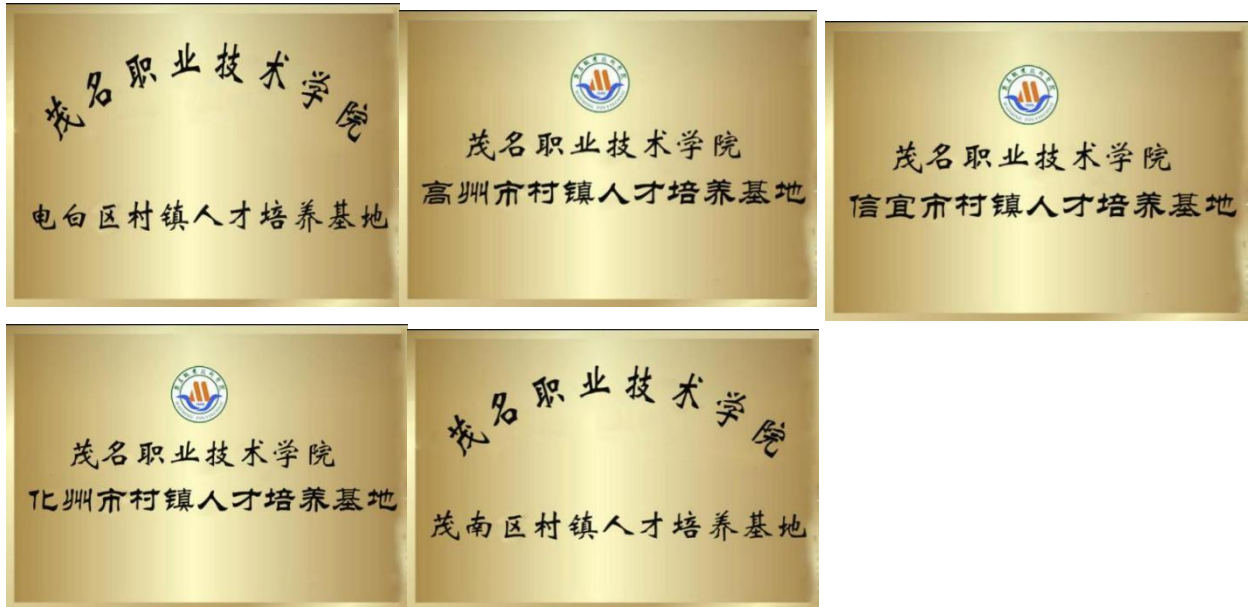 茂名职业技术学院
电白区村镇人才培养基地
茂名职业技术学院
高州市村镇人才培养基地
茂名职业技术学院
信宜市村镇人才培养基地
茂名职业技术学院
化州市村镇人才培养基地
茂名职业技术学院
茂南区村镇人才培养基地